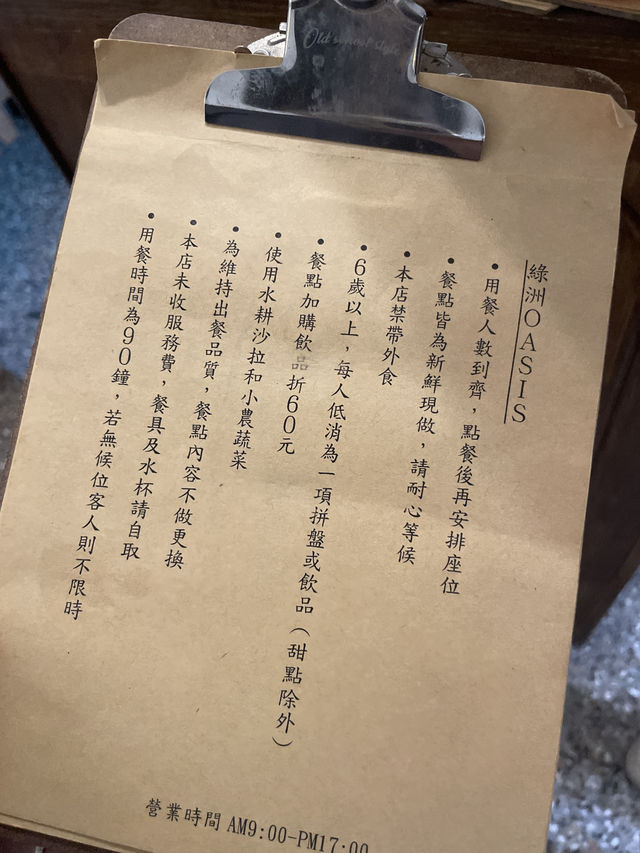 Old school style
綠洲OASIS
•用餐人數到齊，點餐後再安排座位
•餐點皆為新鮮現做，請耐心等候
•本店禁帶外食
•6歲以上，每人低消為一項拼盤或飲品（甜點除外）
•餐點加購飲品折60元
•使用水耕沙拉和小農蔬菜
•為維持出餐品質，餐點內容不做更換
•本店未收服務費，餐具及水杯請自取
•用餐時間為90鐘，若無候位客人則不限時
營業時間 AM9:00-PM17:00